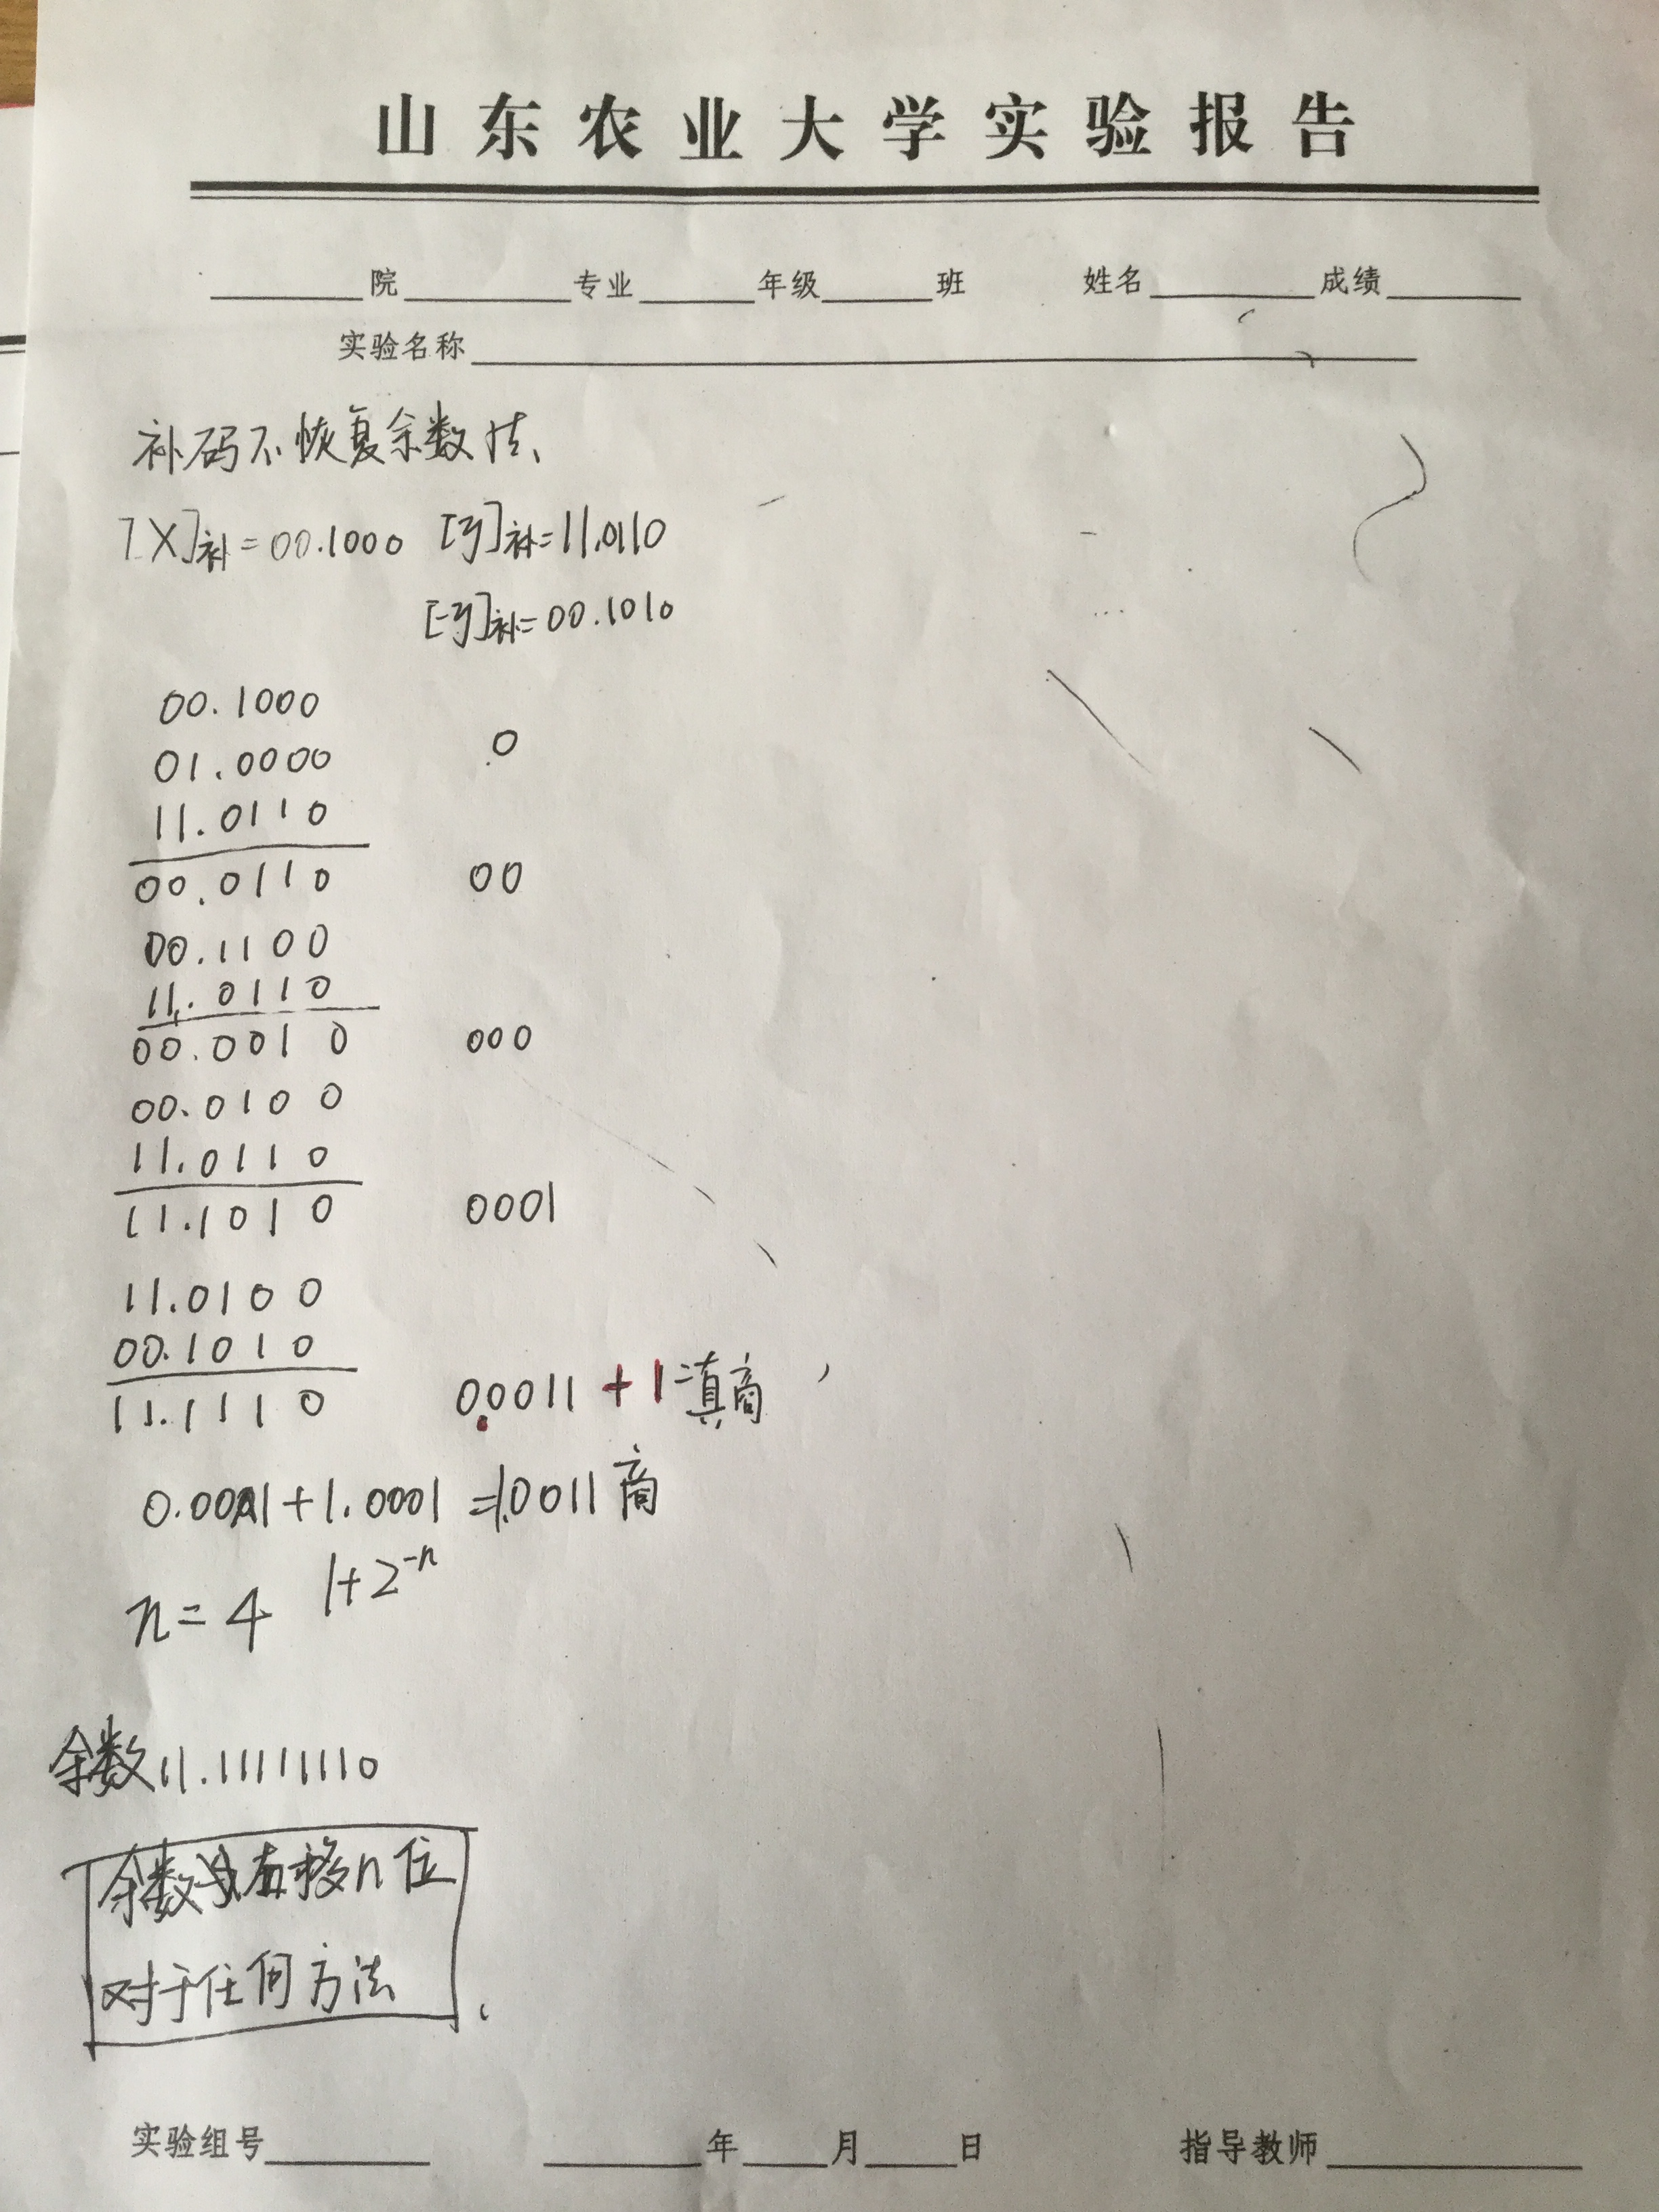 山东农业大学实验报告
院 专业 年级 班 姓名 成绩
实验名称
补码不恢复余数法、
[X]补=00.1000 [y]补=11.0110
[-y]补=00.1010
00.1000
01.0000 0
11.0110
00.0110 00
00.1100
11.0110
00.0010 000
00.0100
11.0110
11.1010 0001
11.0100
00.1010
11.1110 0.0011 +1 商
+1.0001 =1.0011 商
n=4 1+2⁻ⁿ
余数11.11111110
余数 右移n位
对于任何方法
实验组号 年 月 日 指导教师